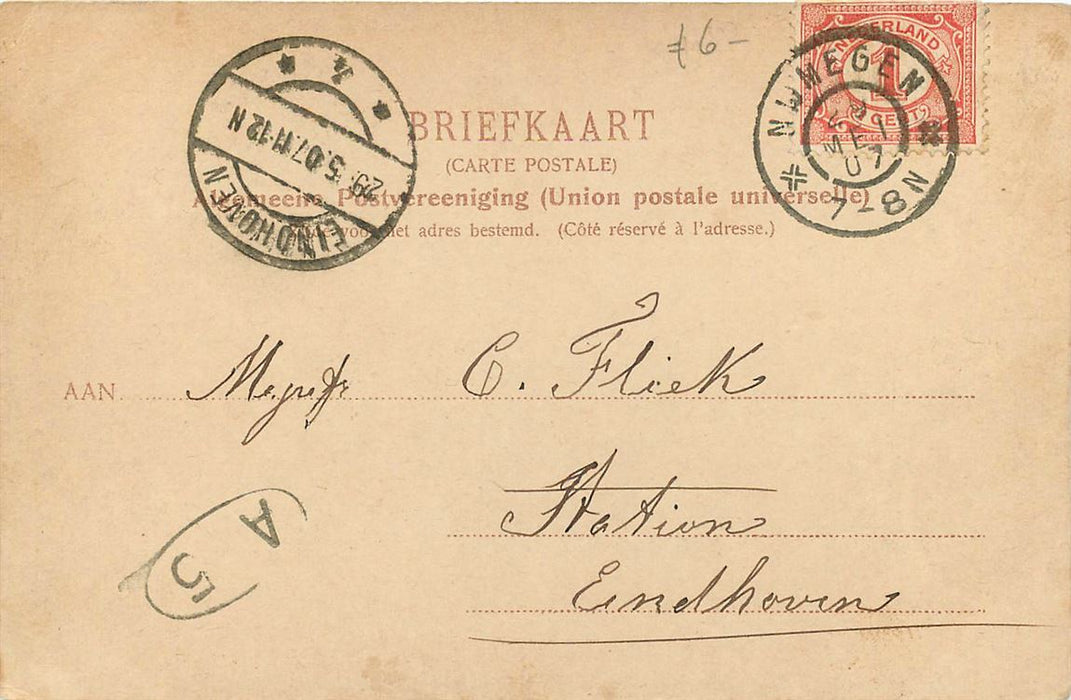 ƒ6-
NEDERLAND
1
CENT
NIJMEGEN
MEI
07
7-8N
4
29. 5.07.11-12 N
EINDHOVEN
BRIEFKAART
(CARTE POSTALE)
Algemeene Postvereeniging (Union postale universelle)
het adres bestemd. (Côté réservé à l'adresse.)
AAN Mejufr C. Fliek
Station
Eindhoven
A
5